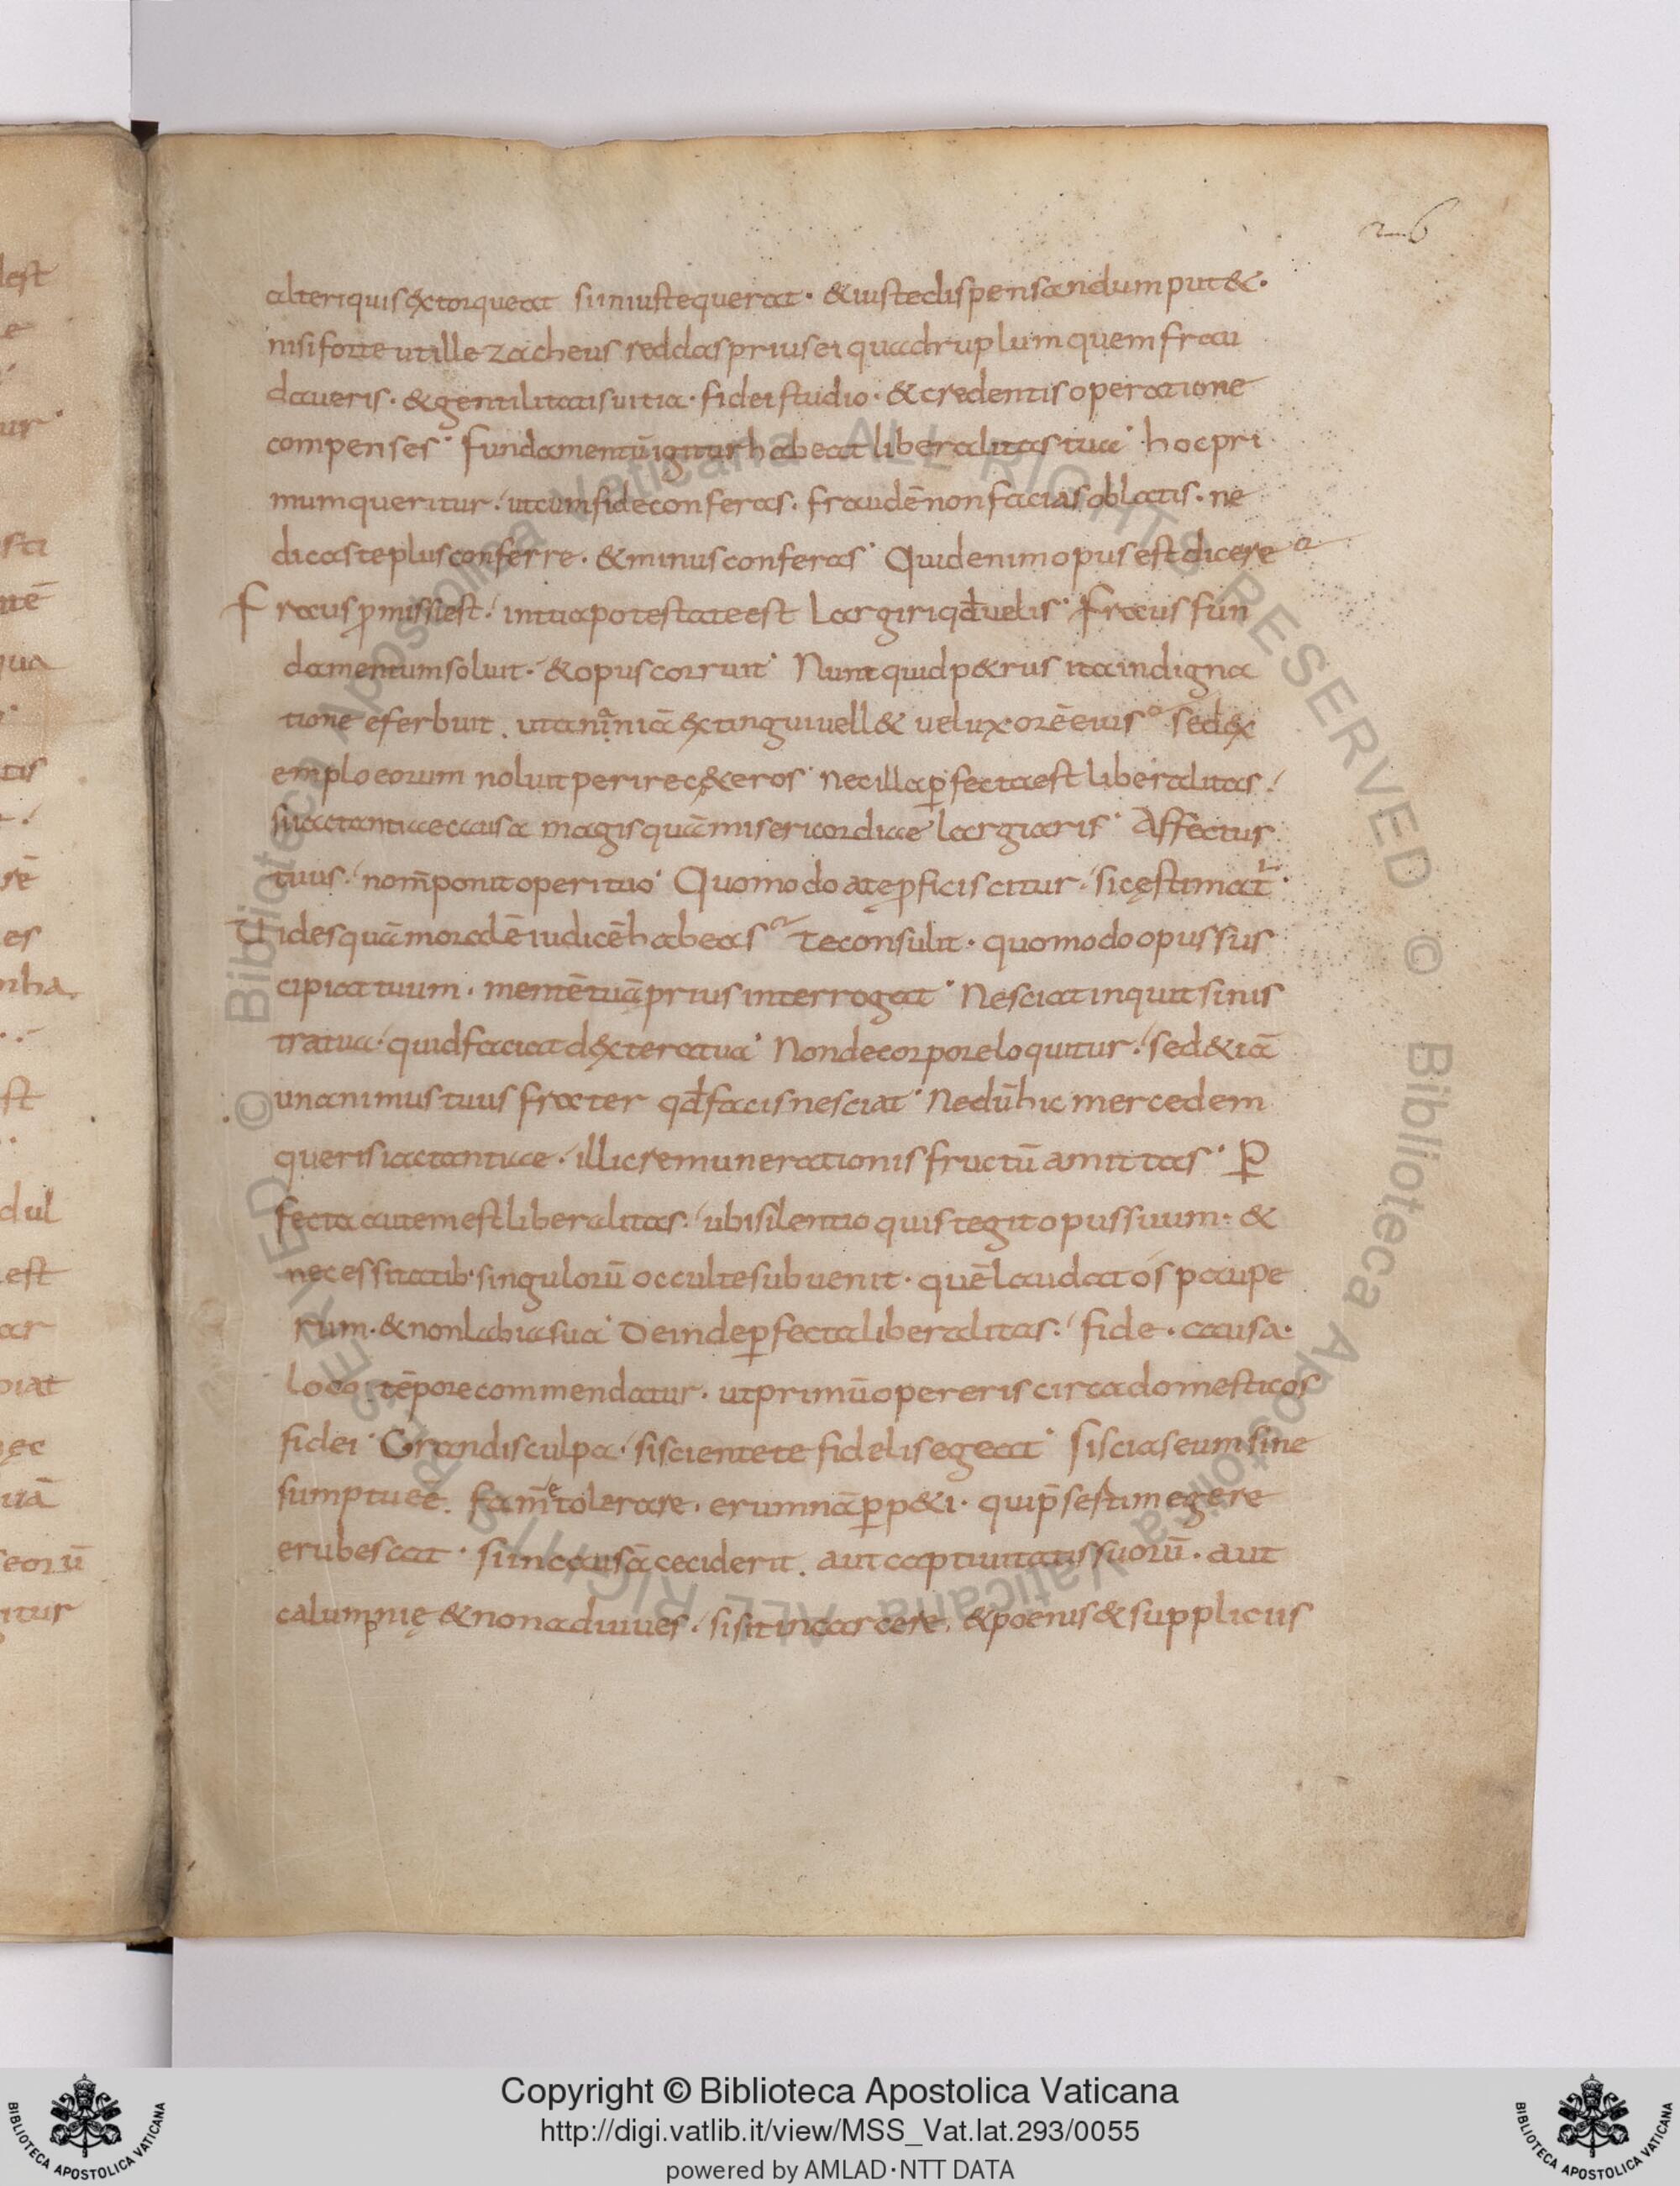 26
alteri quis extorqueat si iniuste querat· & iuste dispensandum put&·
nisi forte ut ille zacheus reddas prius ei quadruplum quem frau
daueris· & gentilitatis uitia· fidei studio· & credentis operatione
compenses· fundamentū igitur habeat liberalitas tua· hoc pri
mum queritur· ut cum fide conferas· fraudē non facias oblatis· ne
dicas te plus conferre· & minus conferas· Quid enim opus est dicere
fraus p̄missi est· in tua potestate est largiri qđ uelis· fraus fun
damentum soluit· & opus corruit· Nunt quid p&rus ita indigna
tione eferbuit· ut ananiā extingui uell& uel uxorē eius sed ex
emplo eorum noluit perire c&eros· nec illa ꝑfecta est liberalitas·
si iactantiae causa magis quā misericordiae largiaris· Affectus
tuus· nom̄ ponit operi tuo· Quomodo a te ꝓficiscitur· sic ęstimat̄·
Uides quā moralē iudicē habeas te consulit· quomodo opus sus
cipiat tuum· mentē tuā prius interrogat· Nesciat inquit sinis
tra tua· quid faciat dextera tua· Non de corpore loquitur· sed &iā
unanimus tuus frater qđ facis nesciat· Ne dū hic mercedem
queris iactantiae· illic remunerationis fructū amittas· Ꝑ
fecta autem est liberalitas· ubi silentio quis tegit opus suum· &
necessitatib· singulorū occulte subuenit· quē laudat os paupe
rum· & non labia sua· Deinde ꝑfecta liberalitas· fide· causa·
loco· tēpore commendatur· ut primū opereris circa domesticos
fidei· Grandis culpa· si sciente te fidelis egeat· si scias eum sine
sumptu eē· famē tolerare· erumnā ꝑp&i· qui p̄sertim egere
erubescat· si in causā ceciderit· aut captiuitatis suorū· aut
calumpnię & non adiuues· si sit in carcere· & poenis & suppliciis
© Biblioteca Apostolica Vaticana ALL RIGHTS RESERVED © Biblioteca Apostolica Vaticana ALL RIGHTS RESERVED
Copyright © Biblioteca Apostolica Vaticana
http://digi.vatlib.it/view/MSS_Vat.lat.293/0055
powered by AMLAD·NTT DATA
BIBLIOTECA APOSTOLICA VATICANA
BIBLIOTECA APOSTOLICA VATICANA